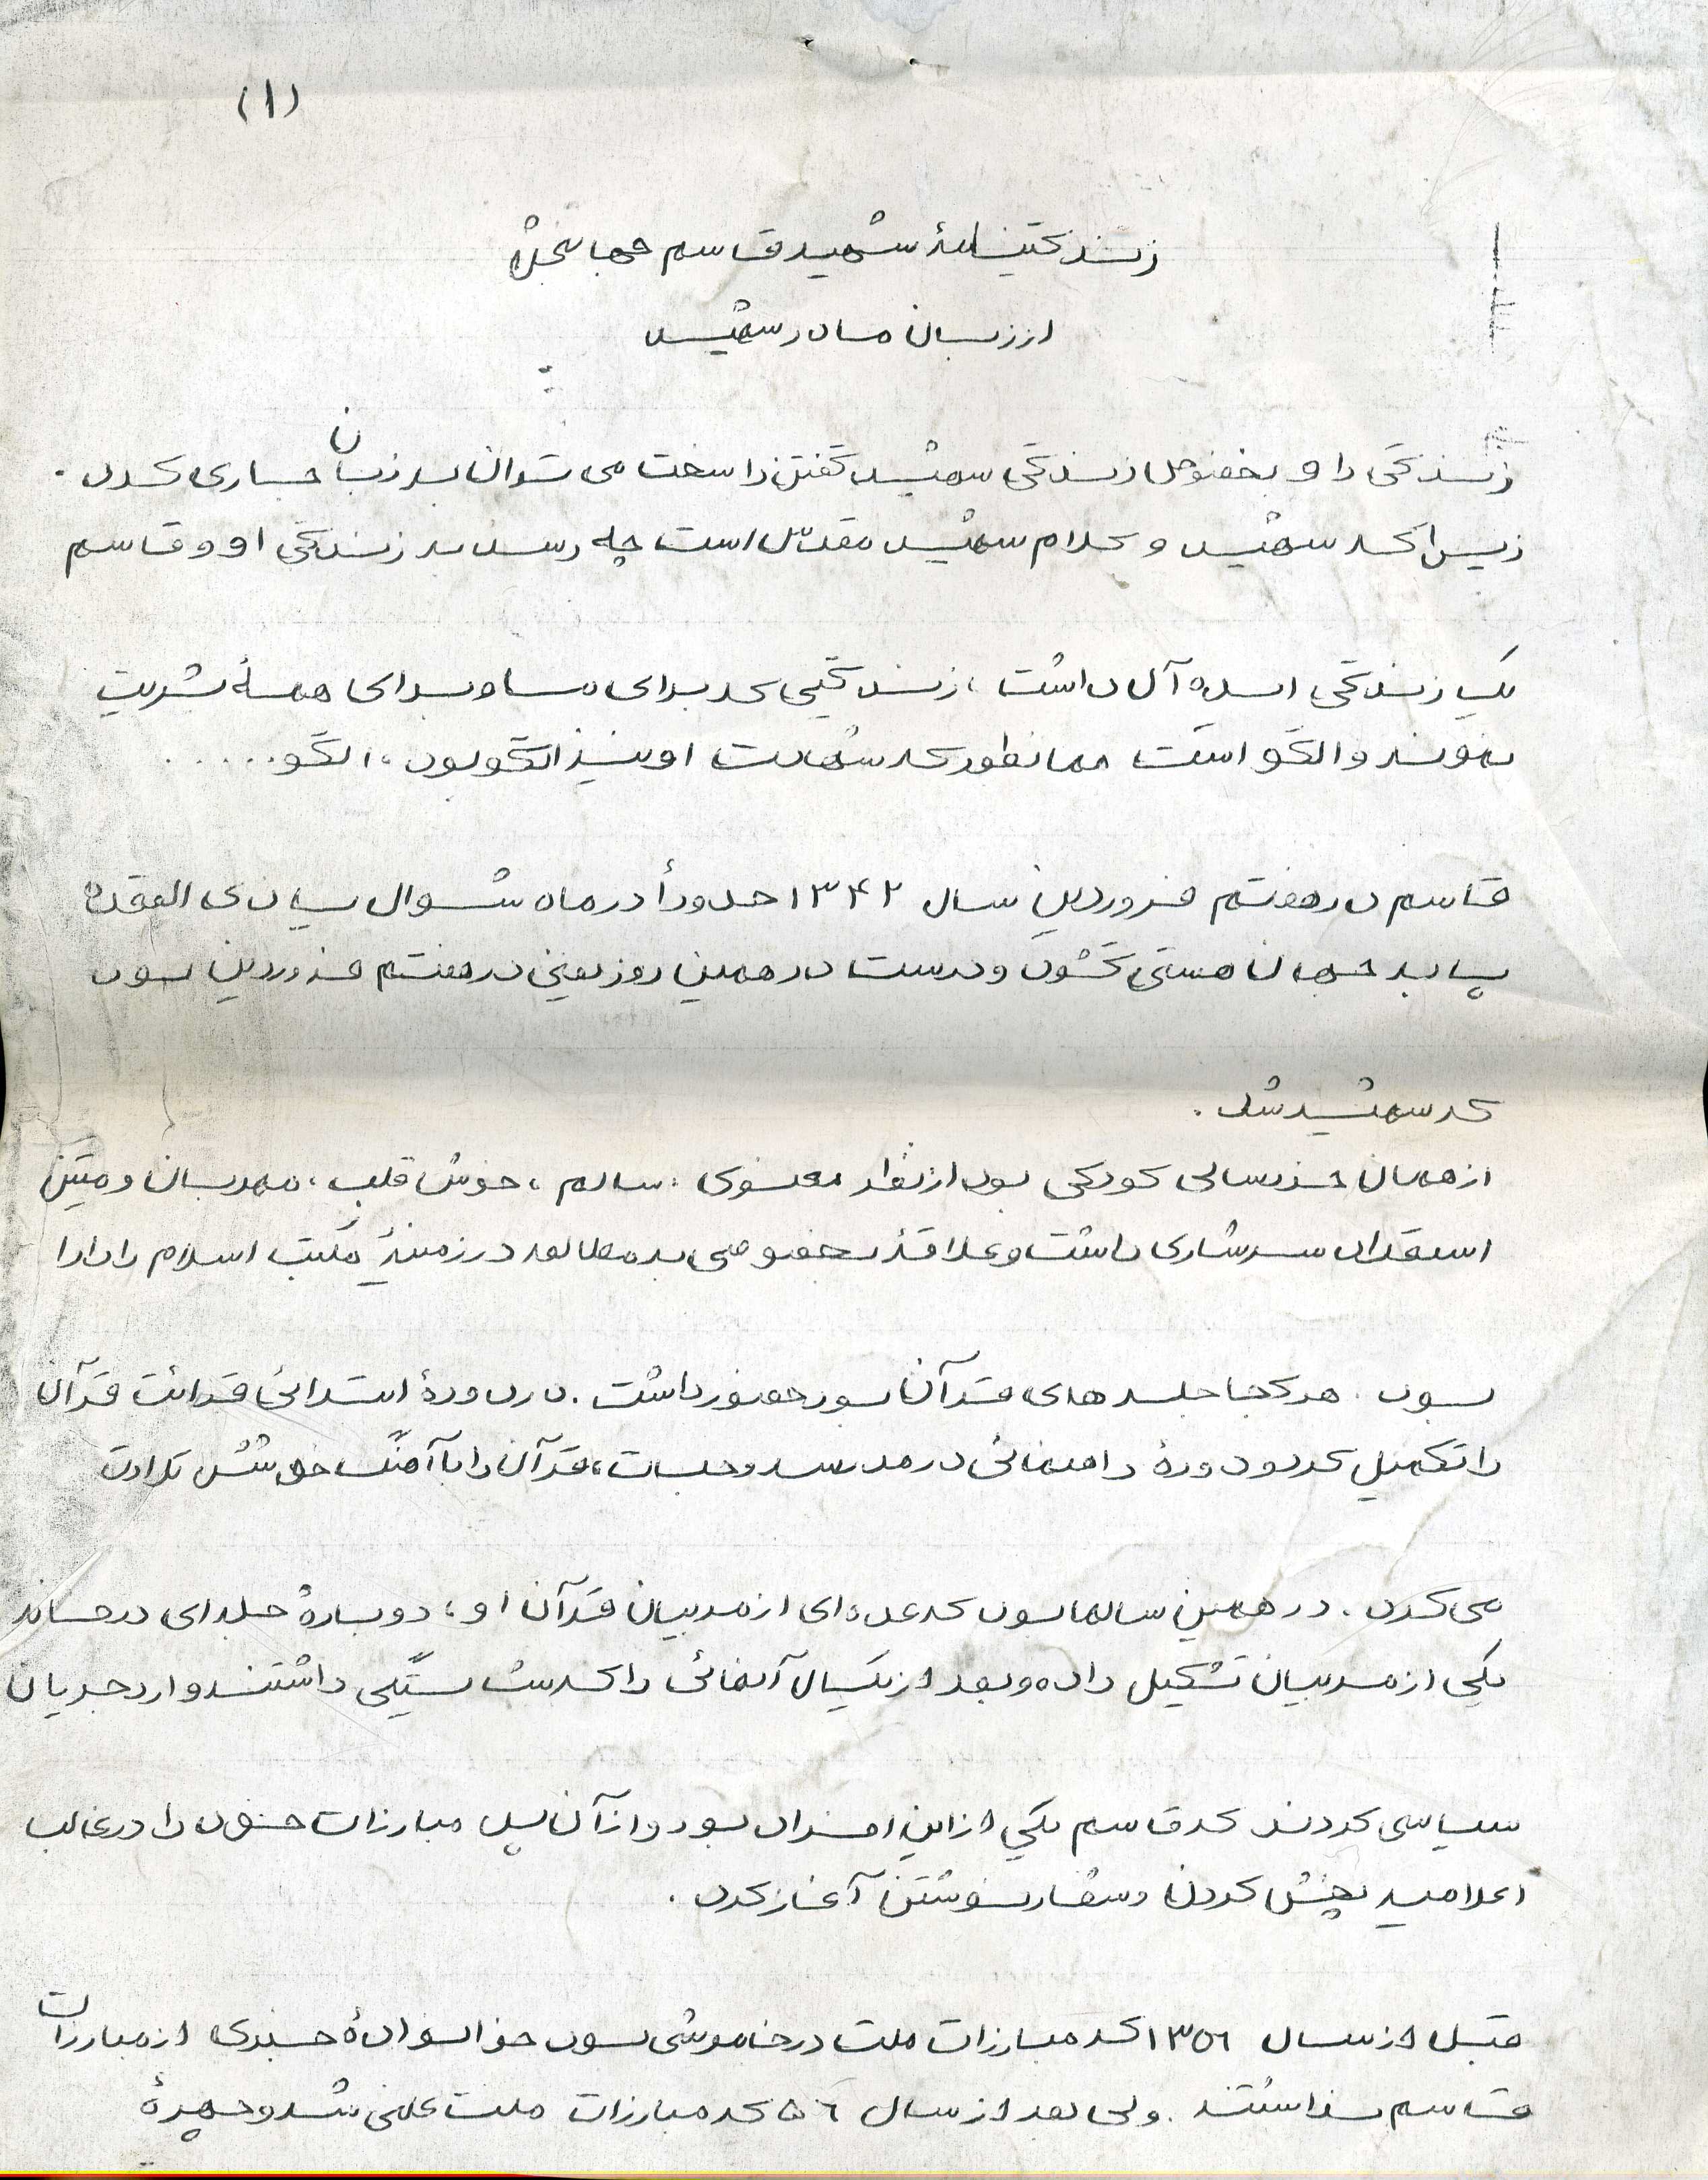 (۱)
زندگینامهٔ شهید قاسم
از زبان مادر شهید
:
زندگی را و بخصوص زندگی شهید گفتن را سخت می توان به زبان جاری کرد .
زیرا که شهید و کلام شهید مقدس است چه رسد به زندگی او و قاسم
یک زندگی ایده آل داشت ، زندگیی که برای ما و برای همهٔ بشریت
نمونه و الگو است همانطور که شهادت او نیز الگو بود ، الگو.....
قاسم در هفتم فروردین سال ۱۳۴۲ حدوداً در ماه شوال یا ذی القعده
پا به جهان هستی گشود و درست در همین روز یعنی در هفتم فروردین بود
که شهید شد .
از همان خردسالی کودکی بود از نظر معنوی ، سالم ، خوش قلب ، مهربان و متین
استعداد سرشاری داشت و علاقهٔ بخصوصی به مطالعه در زمینهٔ مکتب اسلام را دارا
بود . هر کجا جلسه های قرآن بود حضور داشت . در دورهٔ ابتدائی قرائت قرآن
را تکمیل کرد و در دورهٔ راهنمائی در مدرسه و جلسات ، قرآن را با آهنگ خوشش تلاوت
می کرد . در همین سالها بود که عده ای از مربیان قرآن او ، دوباره جلسه ای در خانه
یکی از مربیان تشکیل داده و بعد از یکسال آنهائی را که دست داشتند وارد جریان
سیاسی کردند که قاسم یکی از این افراد بود و از آن پس مبارزات خود را در غالب
اعلامیه پخش کردن و شعار نوشتن آغاز کرد .
قبل از سال ۱۳۵۶ که مبارزات ملت در خاموشی بود خانوادهٔ خبری از مبارزات
قاسم نداشتند . ولی بعد از سال ۵۶ که مبارزات ملت علنی شد و چهرهٔ